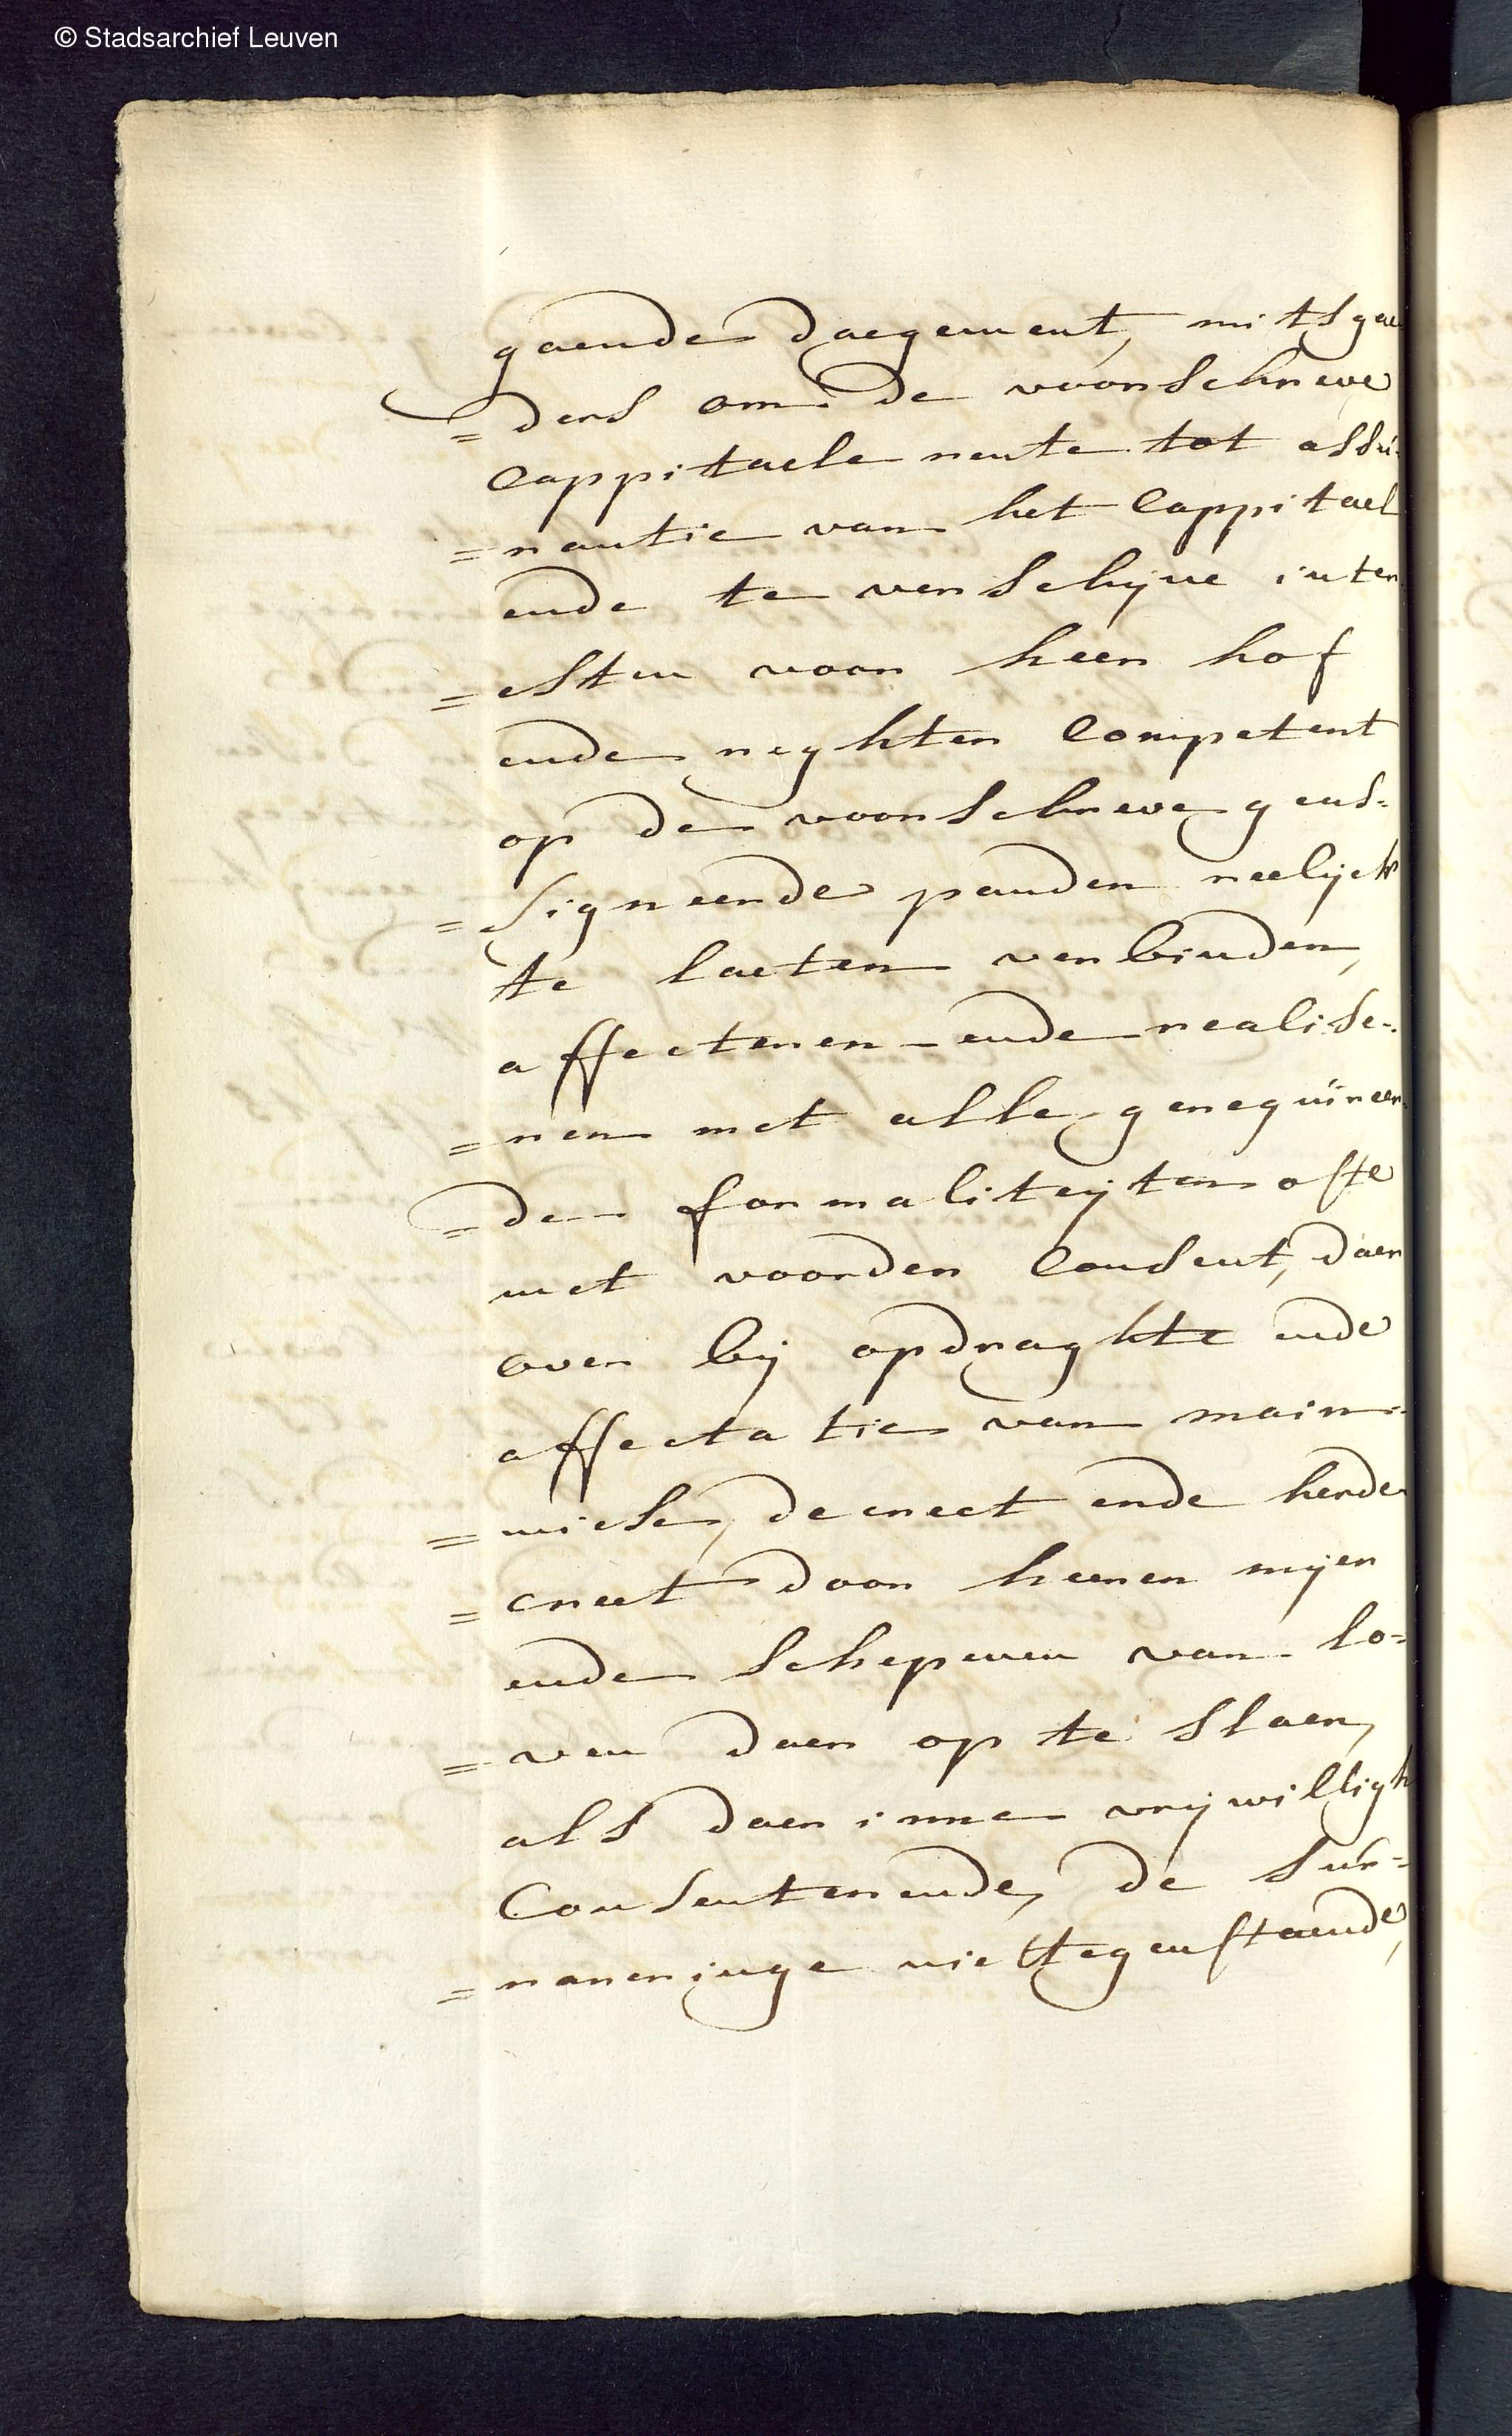 © Stadsarchief Leuven
gaende daegement, mitsgae
=ders om de voorschreve
Cappitaele rente tot assu-
=rantie van het Cappitael
ende te verschijne inter
=esten voor heer hof
ende reghter Competent
op de voorschreve geas-
=signeerde panden reelijck
te laeten verbinden,
affecteren ende realise-
=ren met alle gerequireer
=de formaliteijten ofte
met voorder Consent, daer
over bij opdraghte ende
affectatie van main-
=miese, decreet ende herde
=creet door heeren mijer
ende schepenen van lo=
=ven daer op te slaen,
als daer inne vrijwilligh
Consenterende, de sur=
=rogeringe niettegenstaende,